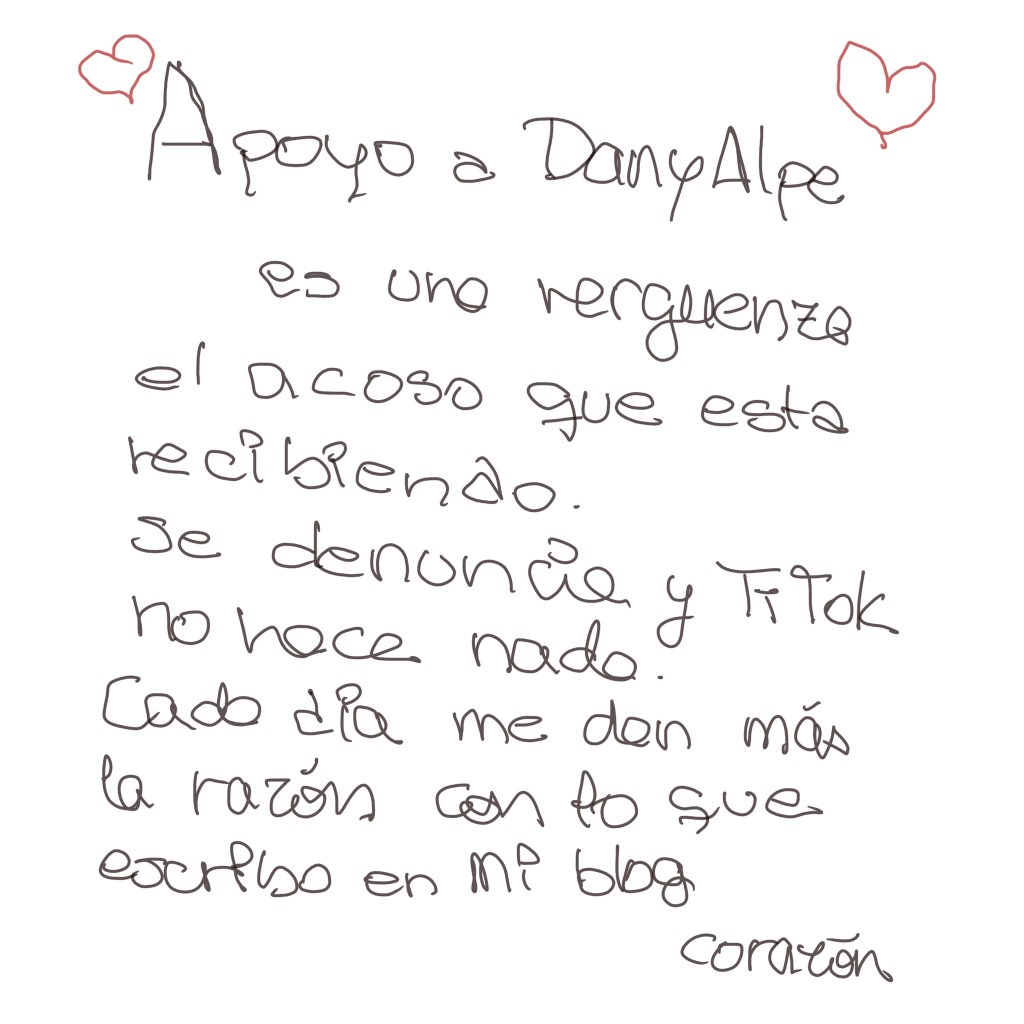 Apoyo a DanyAlpe
es una verguenza
el acoso que esta
recibiendo.
se denuncia y TiTok
no hace nada.
Cada día me dan más
la razón con lo que
escribo en mi blog
corazón